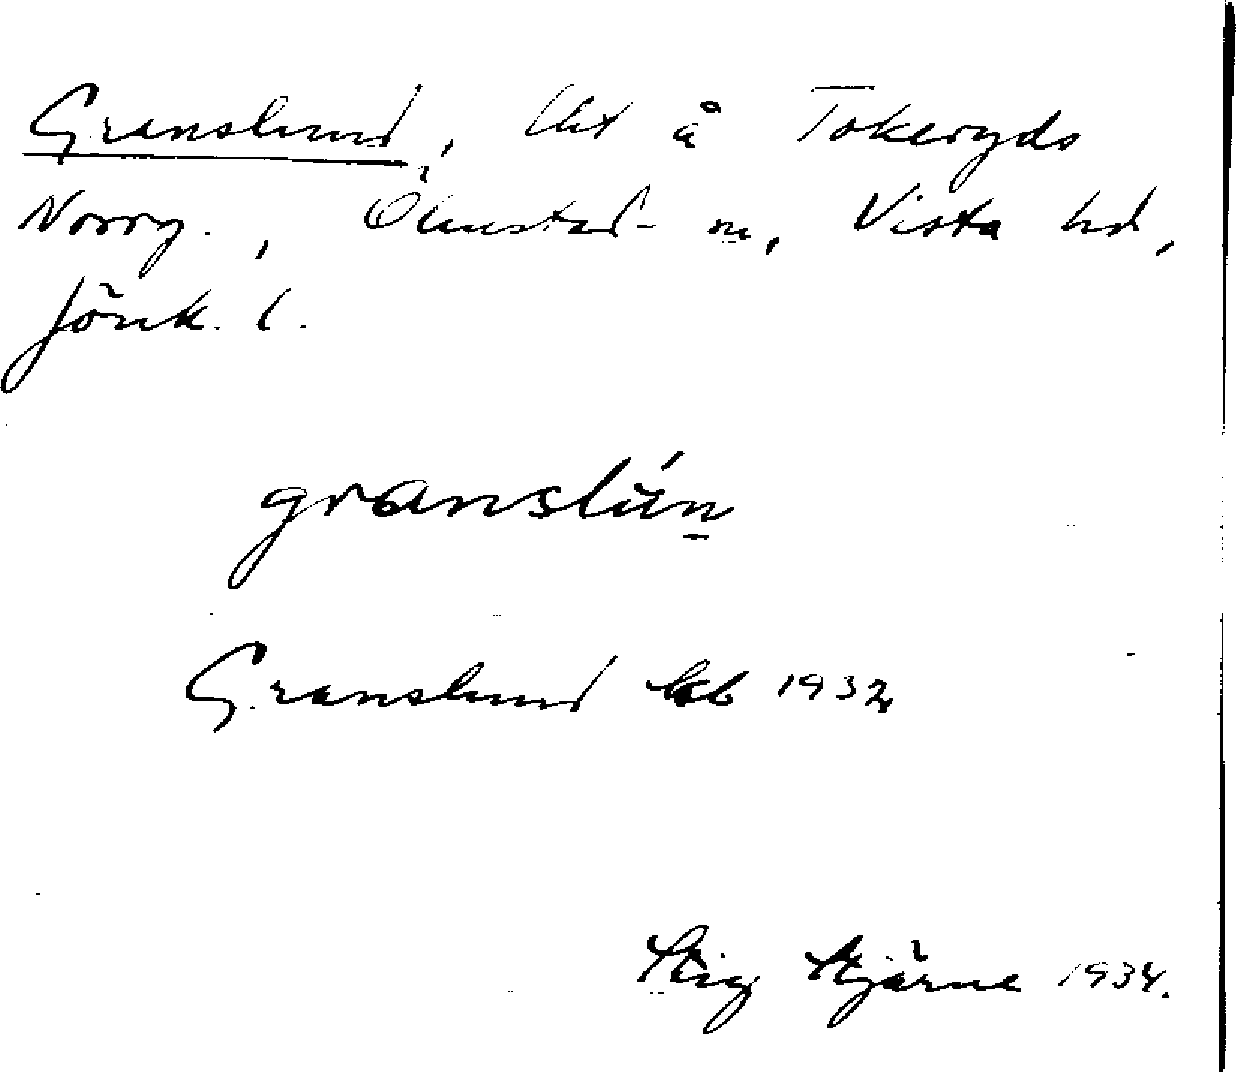 Granslund, lht å Tokeryds
Norrg., Ölmstad sn, Vista hd,
Jönk. l.
granslún
Granslund 1932
Stig Stjärne 1934.